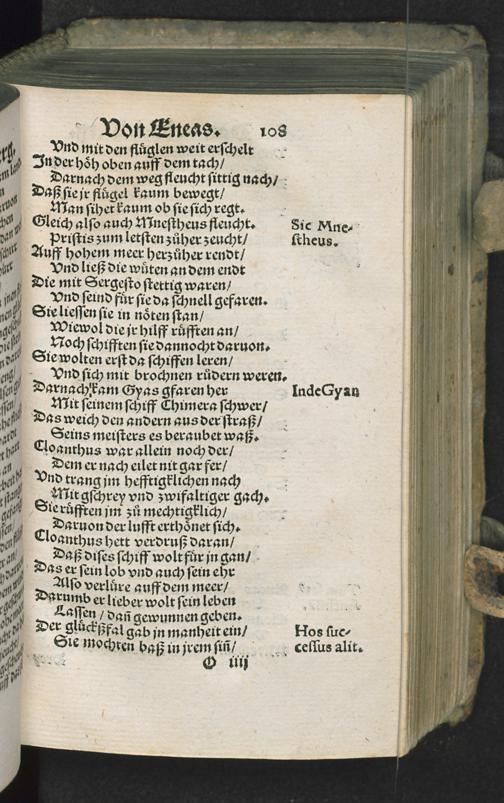 Von Eneas. 108
Vnd mit den flüglen weit erschelt
In der höh oben auff dem tach/
Darnach dem weg fleucht sittig nach/
Daß sie jr flügel kaum bewegt/
Man sihet kaum ob sie sich regt.
Gleich also auch Mnestheus fleucht.
Sic Mne-
stheus.
Pristis zum letsten züher zeucht/
Auff hohem meer herzüher rendt/
Vnd ließ die wüten an dem endt
Die mit Sergesto stettig waren/
Vnd seind für sie da schnell gefaren.
Sie liessen sie in nöten stan/
Wiewol die jr hilff rüfften an/
Noch schifften sie dannocht daruon.
Sie wolten erst da schiffen leren/
Vnd sich mit brochnen rüdern weren.
Darnach kam Gyas gfaren her
Inde Gyan
Mit seinem schiff Chimera schwer/
Das weich den andern aus der straß/
Seins meisters es beraubet waß.
Cloanthus war allein noch der/
Dem er nach eilet nit gar fer/
Vnd trang jm hefftigklichen nach
Mit gschrey vnd zwifaltiger gach.
Sie rüfften jm zů mechtigklich/
Daruon der lufft erthönet sich.
Cloanthus hett verdruß daran/
Daß dises schiff wolt für jn gan/
Das er sein lob vnd auch sein ehr
Also verlüre auff dem meer/
Darumb er lieber wolt sein leben
Lassen/ dañ gewunnen geben.
Der glücksfal gab jn manheit ein/
Hos suc-
cessus alit.
Sie mochten baß in jrem siñ/
O iiij